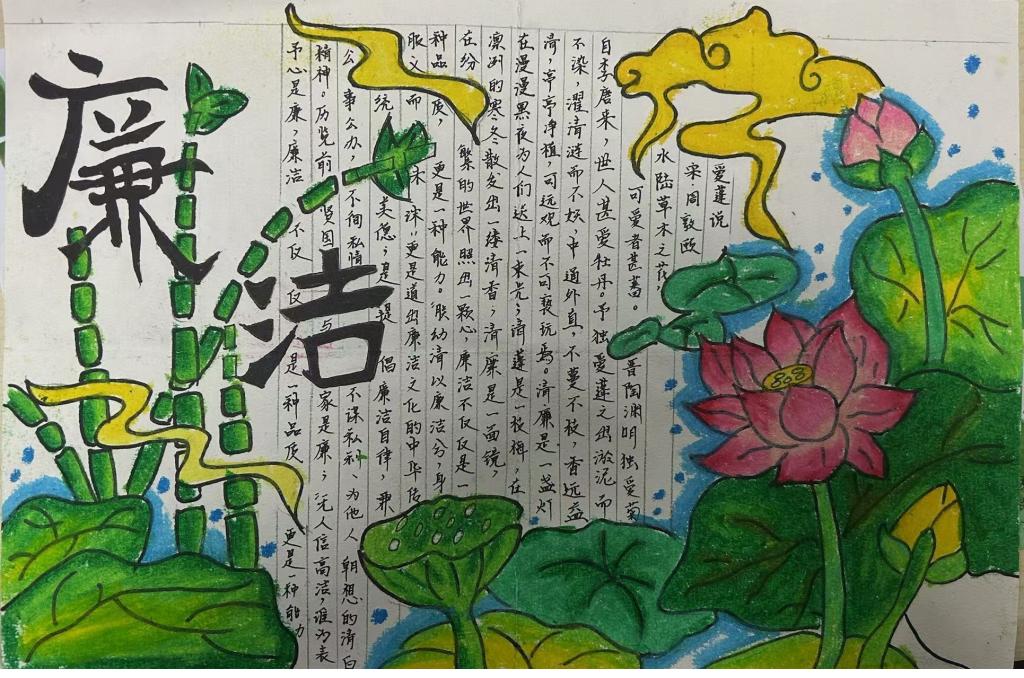 廉洁
爱莲说
宋·周敦颐
水陆草木之花,
可爱者甚蕃。晋陶渊明独爱菊
自李唐来,世人甚爱牡丹。予独爱莲之出淤泥而
不染,濯清涟而不妖,中通外直,不蔓不枝,香远益
清,亭亭净植,可远观而不可亵玩焉。清廉是一盏灯
在漫漫黑夜为人们送上一束光;清莲是一枝梅,在
凛冽的寒冬散发出一缕清香;清廉是一面镜,
在纷繁的世界照出一颗心,廉洁不仅仅是一
种品质,更是一种能力。朕幼清以廉洁兮,身
服义而未沫”更是道出廉洁文化的中华传
统美德;是提倡廉洁自律,兼
公事公办,不徇私情不谋私利、为他人朝想的清白
精神。历览前贤国与家是廉;无人信高洁,谁为表
予心是廉,廉洁不仅仅是一种品质更是一种能力